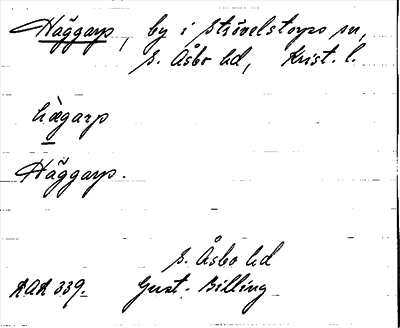 Häggarp, by i Strövelstorps sn,
S. Åsbo hd, Krist. l.
hàgarp
Häggarp.
S. Åsbo hd
RAÄ 339. Gust. Billing